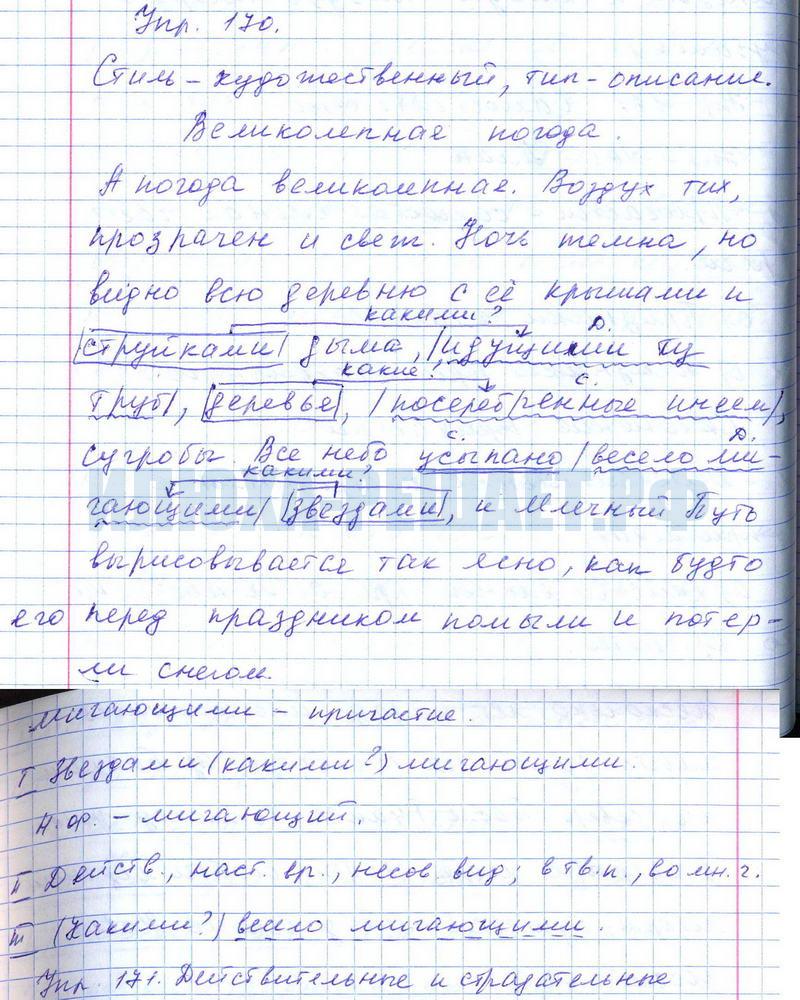 Упр. 170.
Стиль – художественный, тип – описание.
Великолепная погода.
А погода великолепная. Воздух тих,
прозрачен и свеж. Ночь темна, но
видно всю деревню с её крышами и
какими? Д.
струйками дыма, идущими из
какие? С.
труб, деревья, посеребренные инеем,
сугробы. Все небо усыпано весело ми-
С. Д.
какими?
гающими звездами, и Млечный Путь
ИПОХ РЕШАЕТ.РФ
вырисовывается так ясно, как будто
его перед праздником помыли и потер-
ли снегом.
Мигающими – причастие.
I Звездами (какими?) мигающими.
Н.ф. – мигающий.
II Действ., наст. вр., несов. вид; в тв.п., во мн. ч.
III (Какими?) весело мигающими.
Упр. 171. Действительные и страдательные